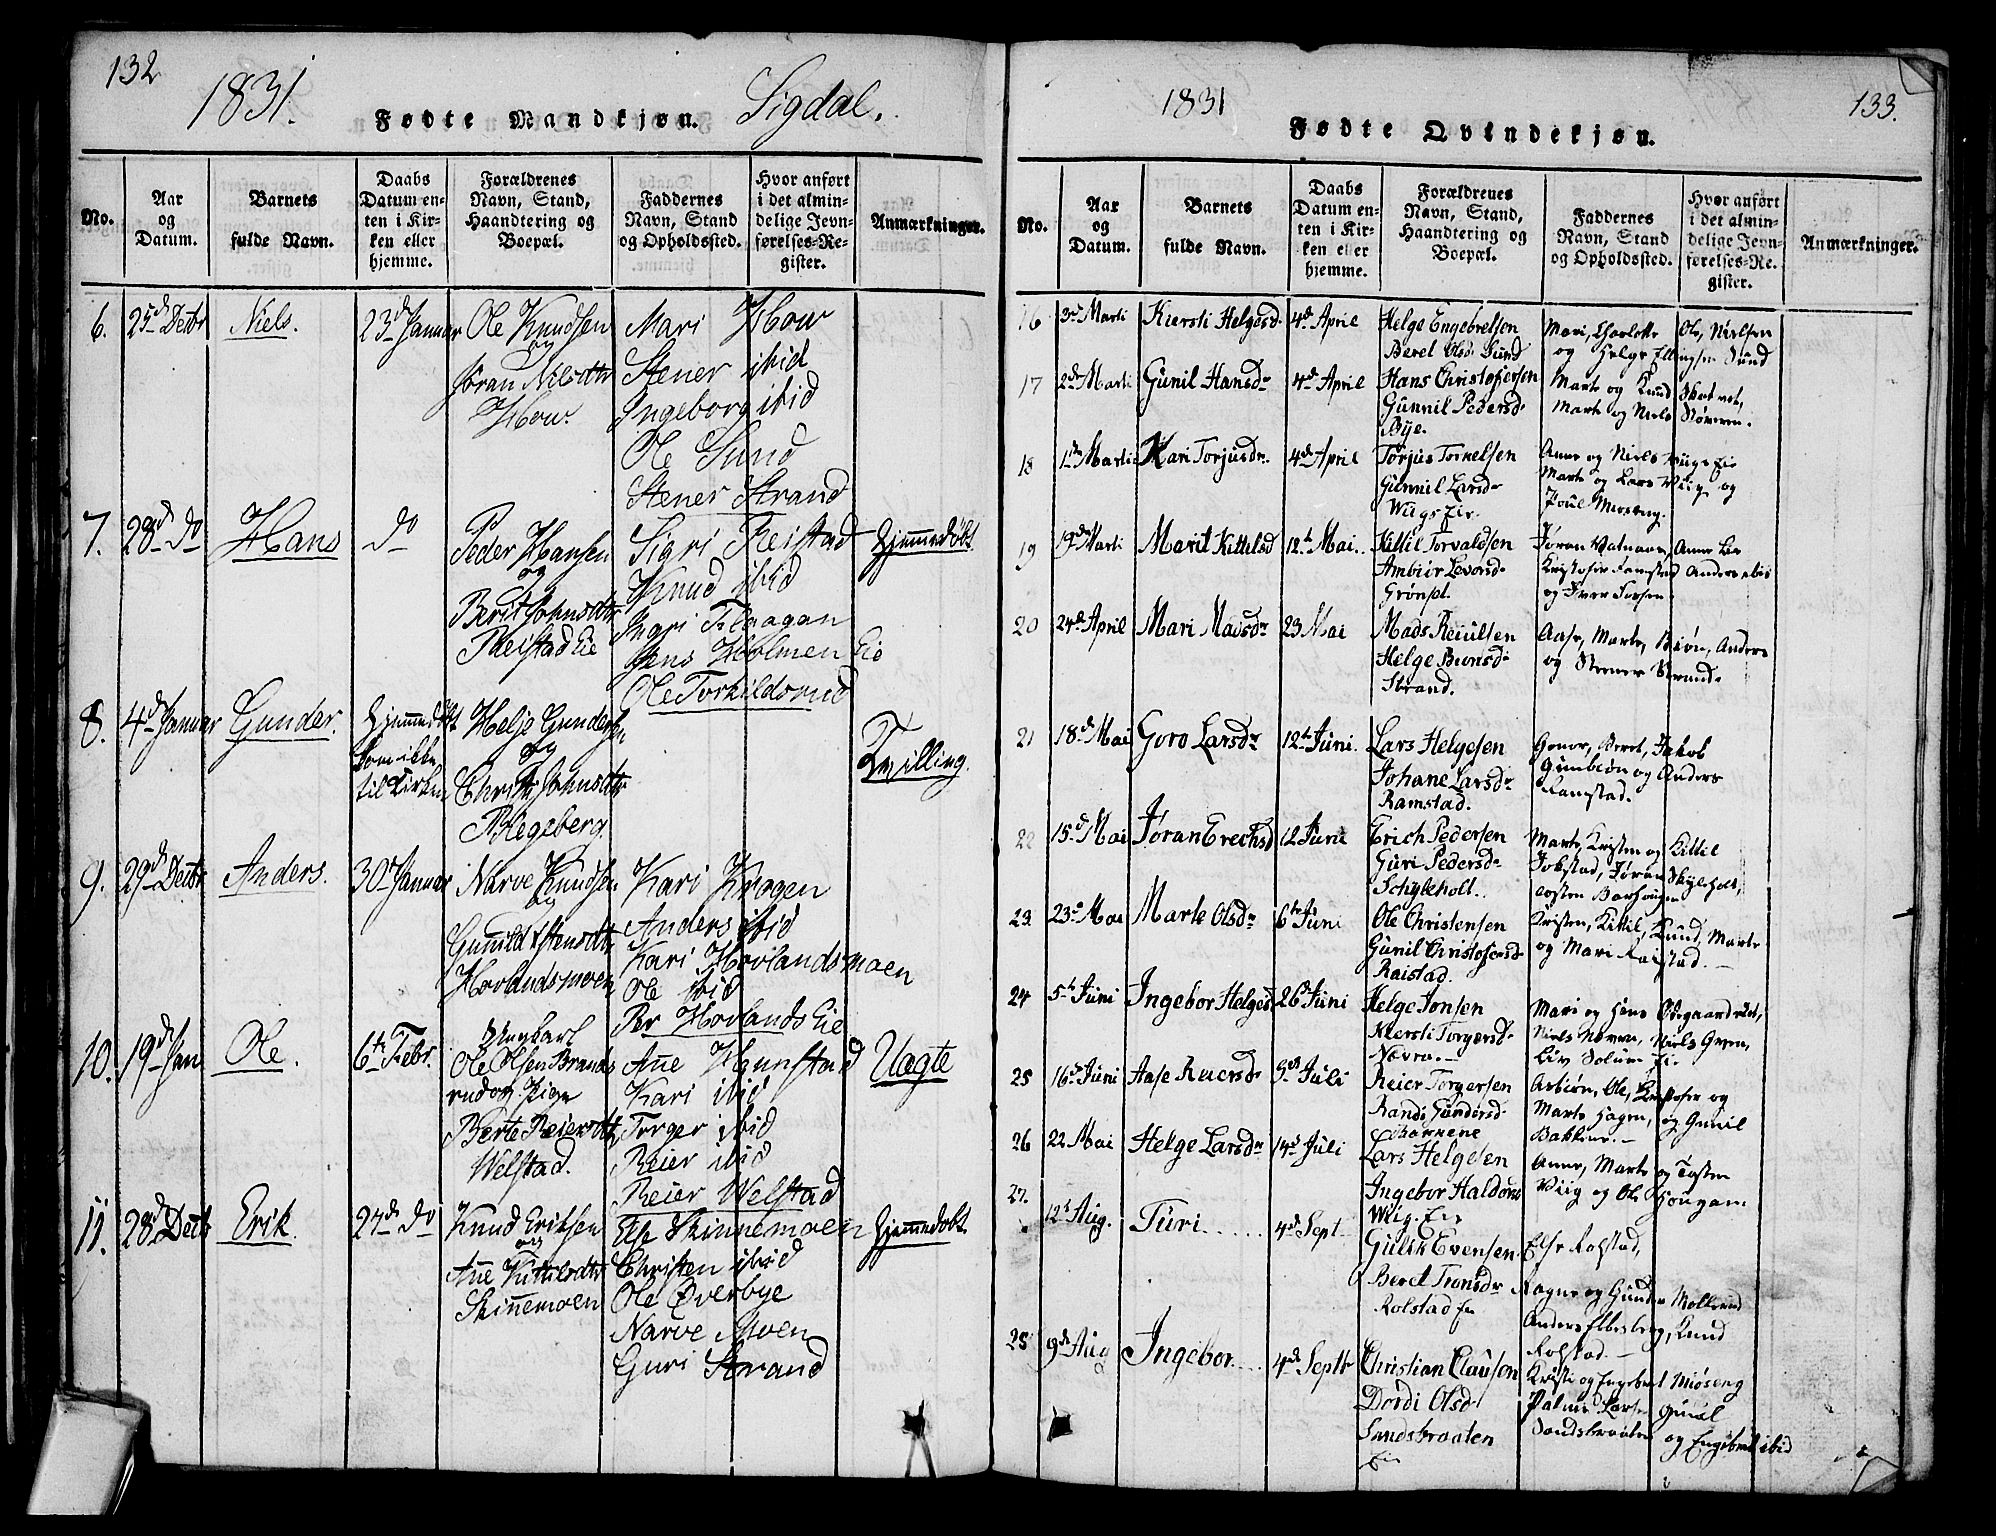 132
1831.
Fødte Mandkjøn.
Sigdal.
No.
Aar og Datum.
Barnets fulde Navn.
Daabs Datum enten i Kirken eller hjemme.
Forældrenes Navn, Stand, Haandtering og Boepæl.
Faddernes Navn, Stand og Opholdssted.
Hvor anført i det almindelige Jevnførelses-Register.
Anmærkninger.
6. 25d Decbr Niels. 23d Januar
Ole Knudsen
og
Jøran Nilsdtr
How.
Mari How
Stener ibid
Ingeborg ibid
Ole Sund
Stener Strand
7. 28d do Hans do
Peder Hansen
og
Berit Johnsdtr
Reistad Eie
Sigri Reistad
Knud ibid
Ingri Flaagan
Jens Holmen Eie
Ole Torkildsrud
Hjemmedøbt
8. 4d Januar Gunder.
Hjemmedøbt
kom ikke
til Kirken
Helje Gundersen
og
Christi Johnsdtr
Blegeberg.
Tvilling.
9. 29d Decbr Anders. 30d Januar
Narve Knudsen
og
Gunnild Stensdtr
Hovlandsmoen
Kari Kragen
Anders ibid
Kari Hovlandsmoen
Ole ibid
Per Hovlands Eie
10. 19d Jan Ole. 6te Febr.
Ungkarl
Ole Olsen Brands
rud og Pige
Berte Reiersdtr
Welstad.
Ane Haunstad
Kari ibid
Torger ibid
Reier ibid
Reier Welstad
Uægte
11. 28d Decb Erik. 27d do
Knud Eriksen
og
Ane Kittilsdtr
Skinnemoen
Else Skinnemoen
Christen ibid
Ole Øverbye
Narve Moen
Guri Strand
Hjemmedøbt
1831
133.
Fødte Qvindekjøn.
No.
Aar og Datum.
Barnets fulde Navn.
Daabs Datum enten i Kirken eller hjemme.
Forældrenes Navn, Stand, Haandtering og Boepæl.
Faddernes Navn, Stand og Opholdssted.
Hvor anført i det almindelige Jevnførelses-Register.
Anmærkninger.
16 3d Marti Kiersti Helgesd. 4d April
Helge Engebretsen
Beret Olsd. Sund
Mari, Charlotte Ole, Nielsen
og Helge Ellingsen Sund
17 2d Marti Gunil Hansdr 4d April
Hans Christofersen
Gunnil Pedersd.
Bye.
Marte og Knud
Marte og Niels
18 1d Marti Kari Torjusdr. 4d April
Torjus Torkelsen
Gunnil Larsdr
Wiigs Eie.
Anne og Niels Wiigs Eie
Marte og Lars Wiig og
Poul
19 19d Marti Marit Kittelsd 12th Mai.
Kittil Torvaldsen
Grønpl.
Jøran Anne Lie
Kristofer Ramstad Anders ibid
og Iver
20 24d April Mari Madsdr 23 Mai
Mads Reiulsen
Helge
Strand.
Aase, Marte, Biøn, Anders
og Steener Strand.
21 18d Mai Goro Larsdr 12th Juni.
Lars Helgesen
Johane Larsdr
Ramstad.
Gonor, Beret, Jakob
Gunbiøn og Anders
Ramstad.
22 15d Mai Jøran Erechsd 12 Juni
Erich Pedersen
Guri Pedersdr
Schyleholt.
Marte, Kristen og Kittil
Jokstad, Jøran Skyleholt,
23. 23d Mai Marte Olsdr 6te Juni
Ole Christensen
Gunil Christofersd
Raistad.
Kristen, Kittil, Knud, Marte
og Mari Raistad.
24 5th Juni Ingebor Helgesd 26d Juni
Helge Jonsen
Kiersti Torgersd.
Nævra.
Mari og Hans
Niels Nævra, Niels
Liv Solum Eie
25 16d Juni Aase Reiersd. 3d Juli
Reier Torgersen
Randi Gundersd.
Asbiøn, Ole, Kristofer og
Marte Hagen, og Gunil
Bakken.
26 22 Mai Helge Larsdr 14d Juli
Lars Helgesen
Ingebor
Wiig. Eie
Anne, Marte og Tosten
Wiig og Ole Hougan.
27. 12th Aug. Turi 4d Sept
Gulik Evensen
Beret Tronsdr
Rolstad Eie
Else Rolstad,
Ragne og Gunder
Anders Knud
Rolstad.
28 9de Aug Ingebor 4d Septb
Christian Clausen
Dordi Olsd
Sandsbraaten
Eie
Kristi og Engebret Miøseng
Sandsbraaten
og Engebret ibid